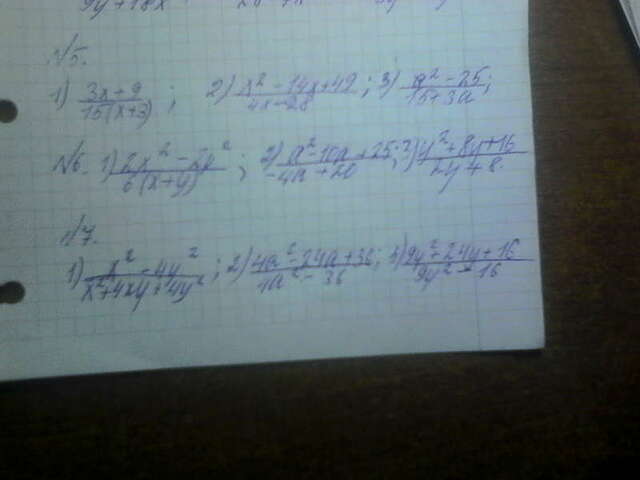 9y+18x
№5.
1) (3x+9)/(15(x+3)); 2) (x²-14x+49)/(4x-28); 3) (a²-25)/(15+3a);
№6. 1) (2x²-2y²)/(6(x+y)); 2) (a²-10a+25)/(-4a+20); 3) (y²+8y+16)/(2y+8).
№7.
1) (x²-4y²)/(x²+4xy+4y²); 2) (4a²-24a+36)/(4a²-36); 3) (9y²+24y+16)/(9y²-16)